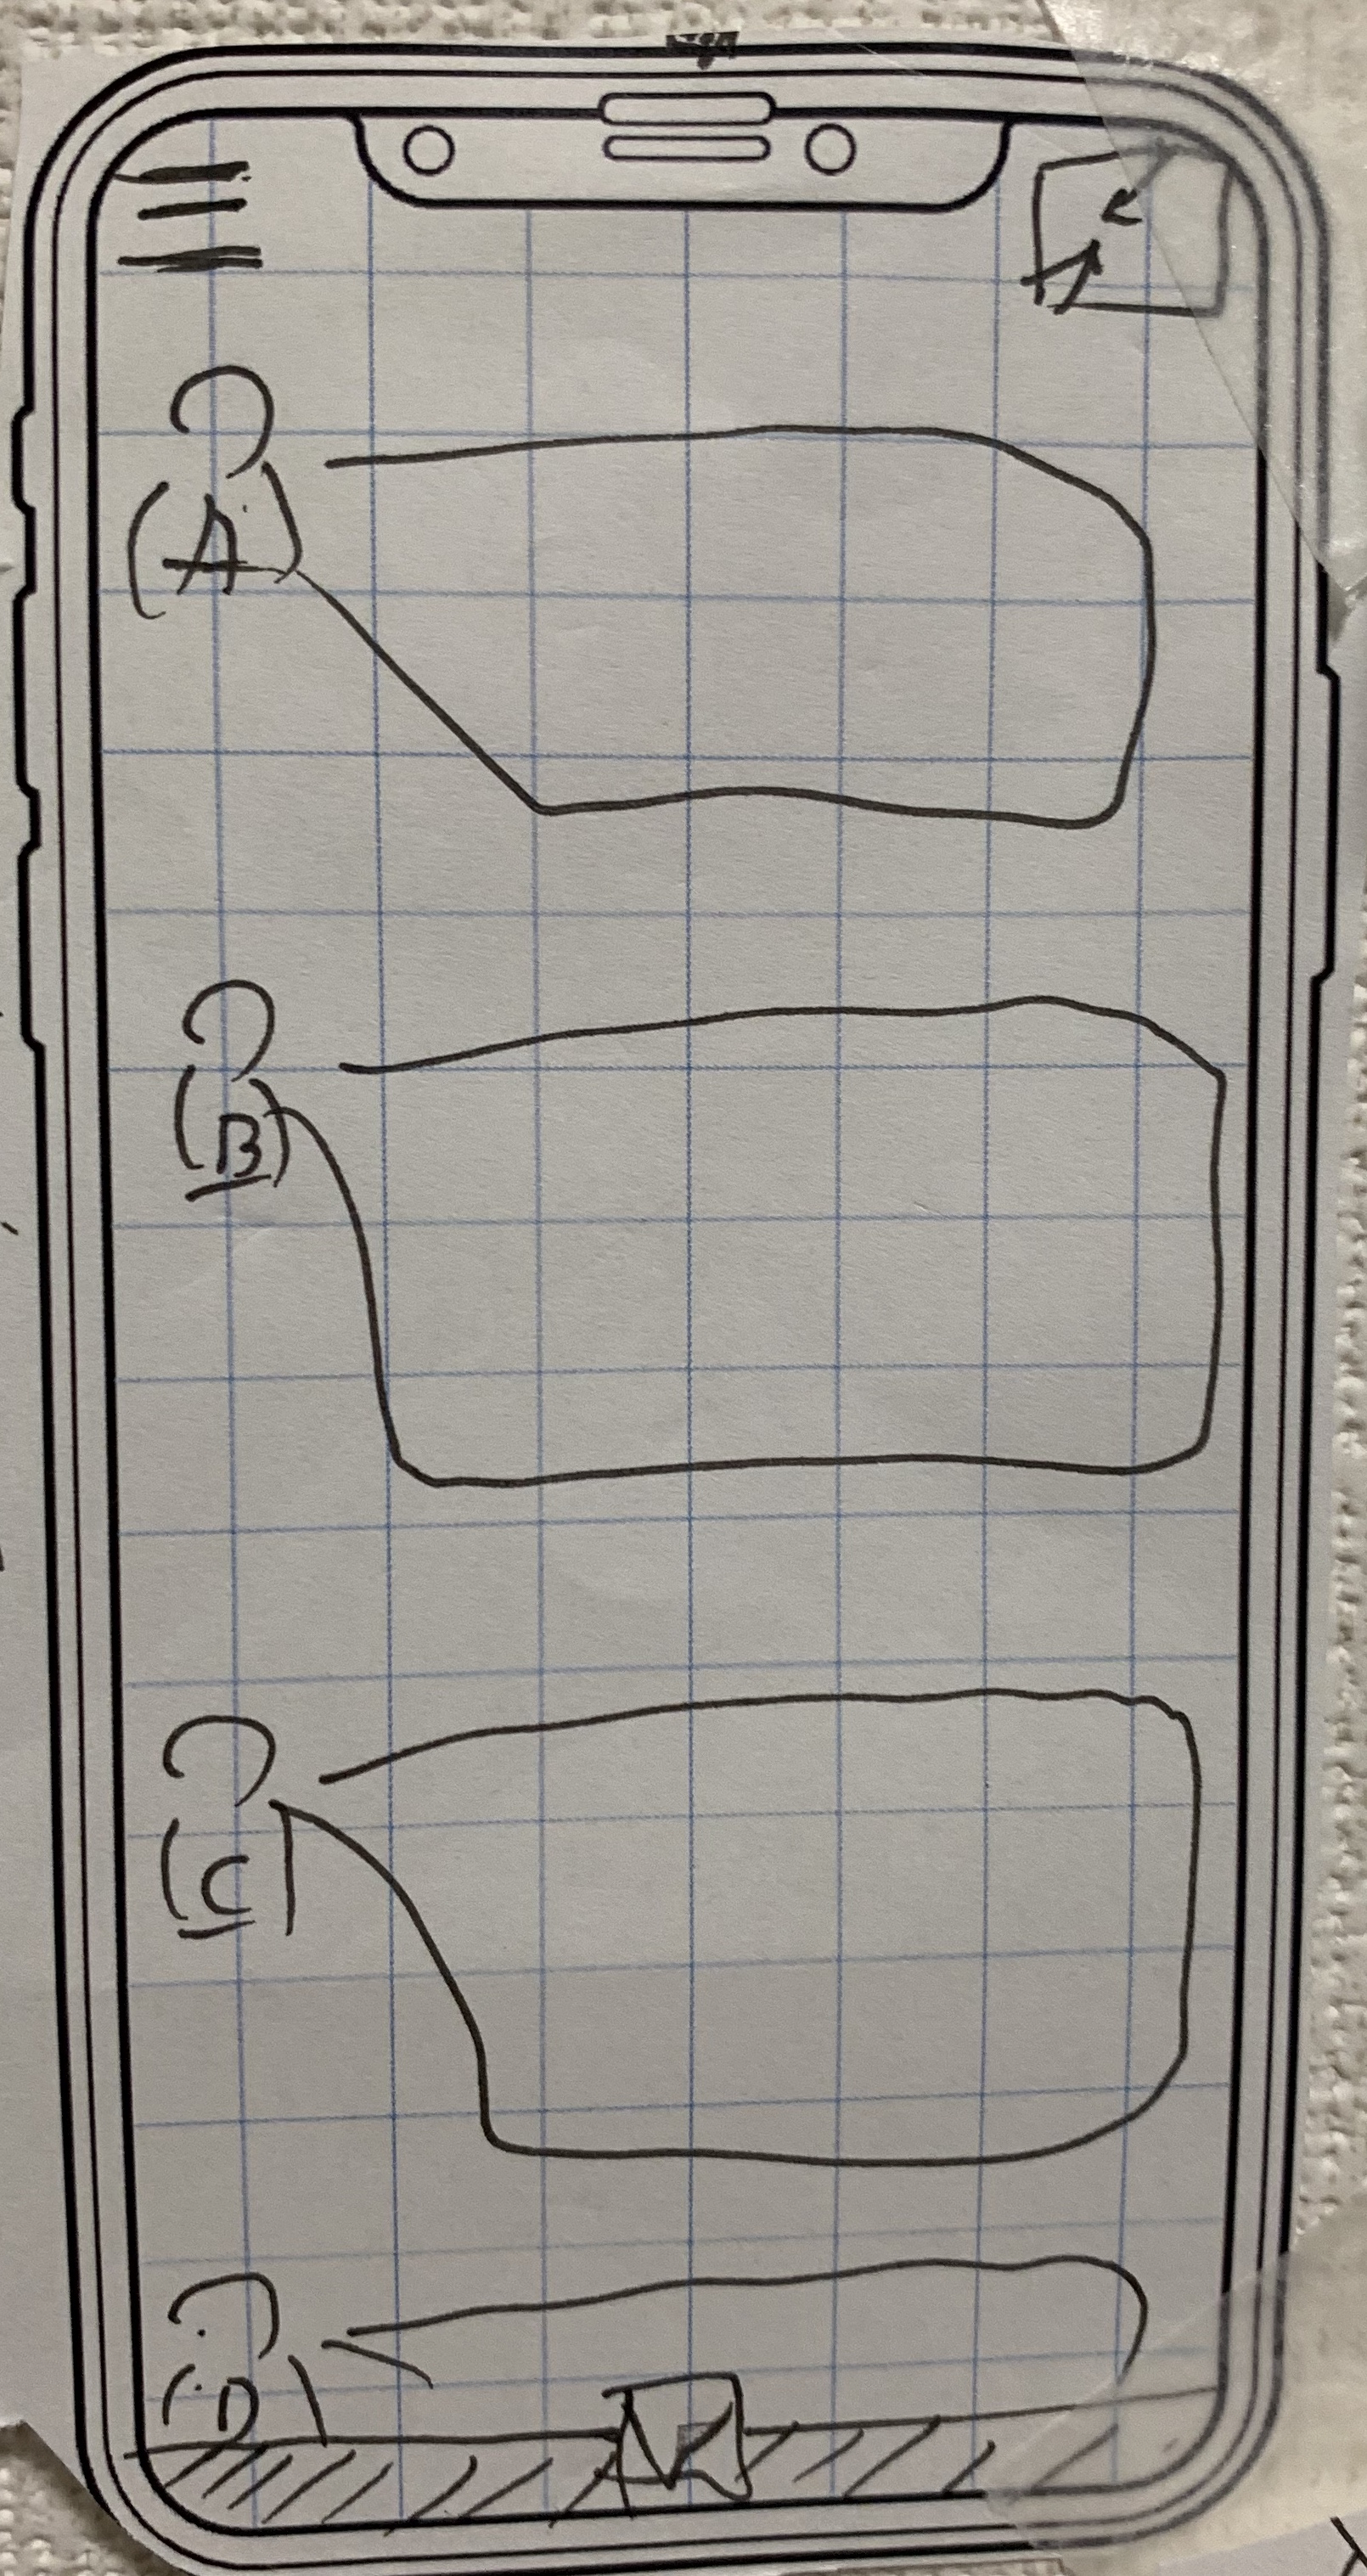 (A)
(B)
(C)
(D)